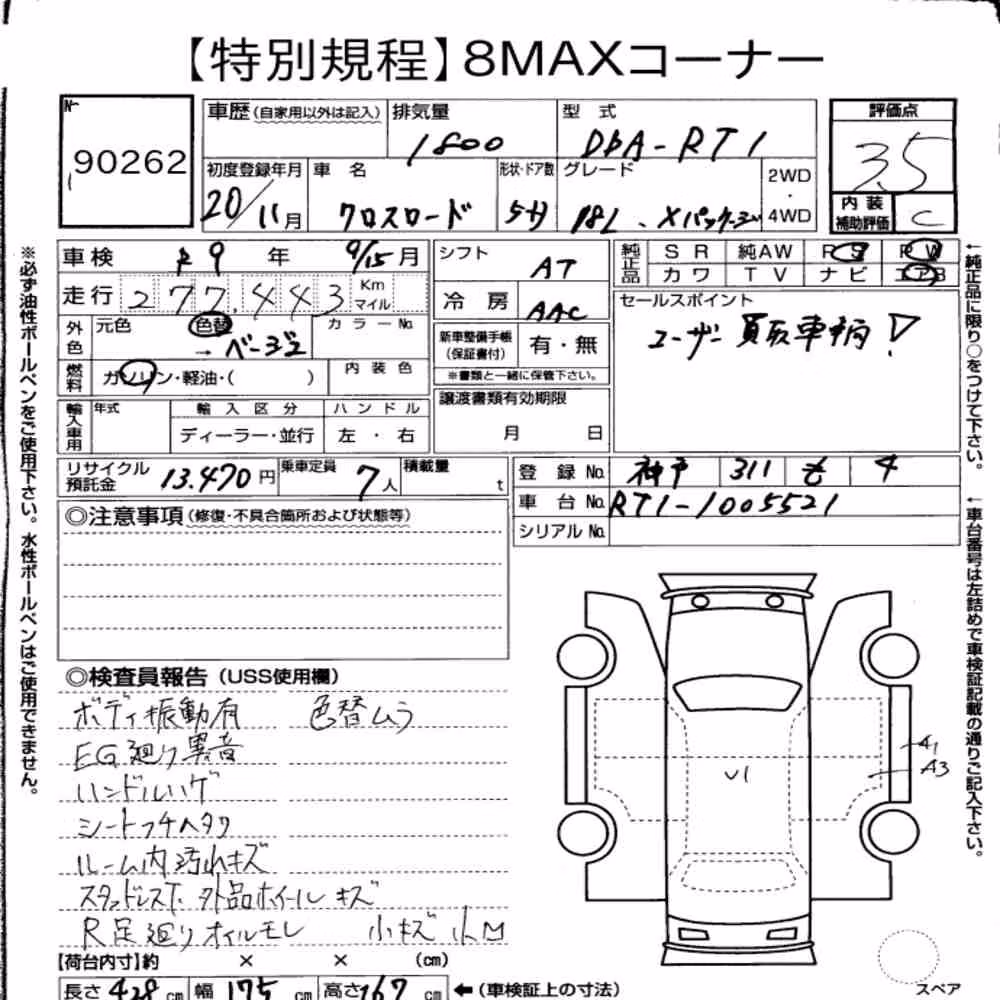 【特別規程】8MAXコーナー
№
90262
車歴(自家用以外は記入) 排気量 1800 型 式 DBA-RT1
評価点 3.5
初度登録年月 20/11月 車 名 クロスロード 形状・ドア数 5D グレード 18L・Xパッケージ 2WD・4WD
内装補助評価 C
※必ず油性ボールペンをご使用下さい。水性ボールペンはご使用できません。
車検 R9 年 9/15月
シフト AT
純正品 S R 純AW P S P W
カワ T V ナビ エアB
走行 277,443 Km マイル
冷 房 AAC
セールスポイント
ユーザー買取車輌!
外色 元色 色替 → ベージュ カラーNo.
新車整備手帳(保証書付) 有・無
※書類と一緒に保管下さい。
燃料 ガソリン・軽油・( ) 内装色
譲渡書類有効期限
月 日
輸入車用 年式 輸入区分 ハンドル
ディーラー・並行 左・右
リサイクル預託金 13.470円 乗車定員 7人 積載量 t
登録 No. 神戸 311 も 4
車台 No. RT1-1005521
シリアル No.
←純正品に限り○をつけて下さい。
←車台番号は左詰めで車検証記載の通りご記入下さい。
◎注意事項(修復・不具合箇所および状態等)
◎検査員報告(USS使用欄)
ボディ振動有 色替ムラ
EG廻り異音
ハンドルハゲ
シートフチヘタリ
ルーム内汚れキズ
スタッドレスT. 外品ホイールキズ
R足廻りオイルモレ 小キズ 小凹
A1
A3
U1
【荷台内寸】約 × × (cm)
長さ 428 cm 幅 175 cm 高さ 167 cm ←(車検証上の寸法)
スペア